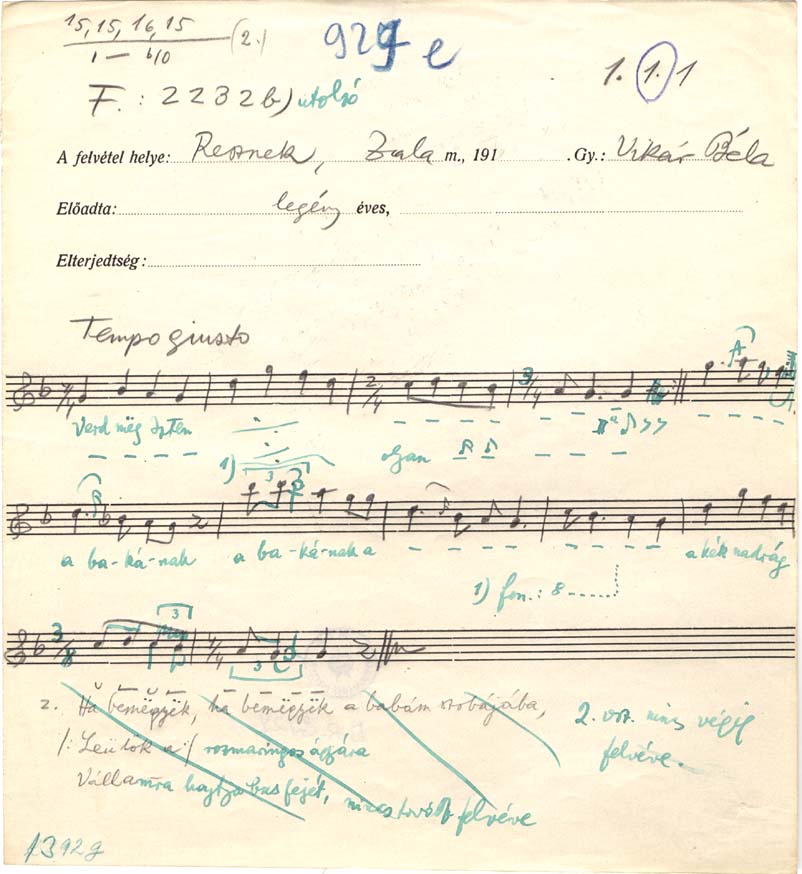 15, 15, 16, 15 (2.)
1 — b10
929 e
1. 1. 1
F.: 2232b) utolsó
A felvétel helye: Resznek, Zala m., 191 . Gy.: Vikár Béla
Előadta: legény éves,
Elterjedtség:
Tempo giusto
Verd mëg Isten
olyan
1)
3
a ba-ká-nak a ba-ká-nak a
a kék nadrág
1) fon.: 8
2. Ha bemëgyëk, ha bemëgyëk a babám szobájába,
/: Leülök a :/ rozmaringos ágyára
Vállamra hajtja bus fejét, nincs tovább felvéve
2. vsz. nincs végig
felvéve.
1392g